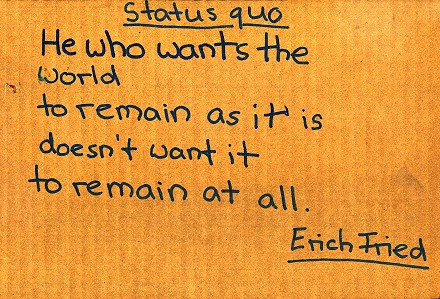 Status quo
He who wants the
world
to remain as it is
doesn't want it
to remain at all.
Erich Fried